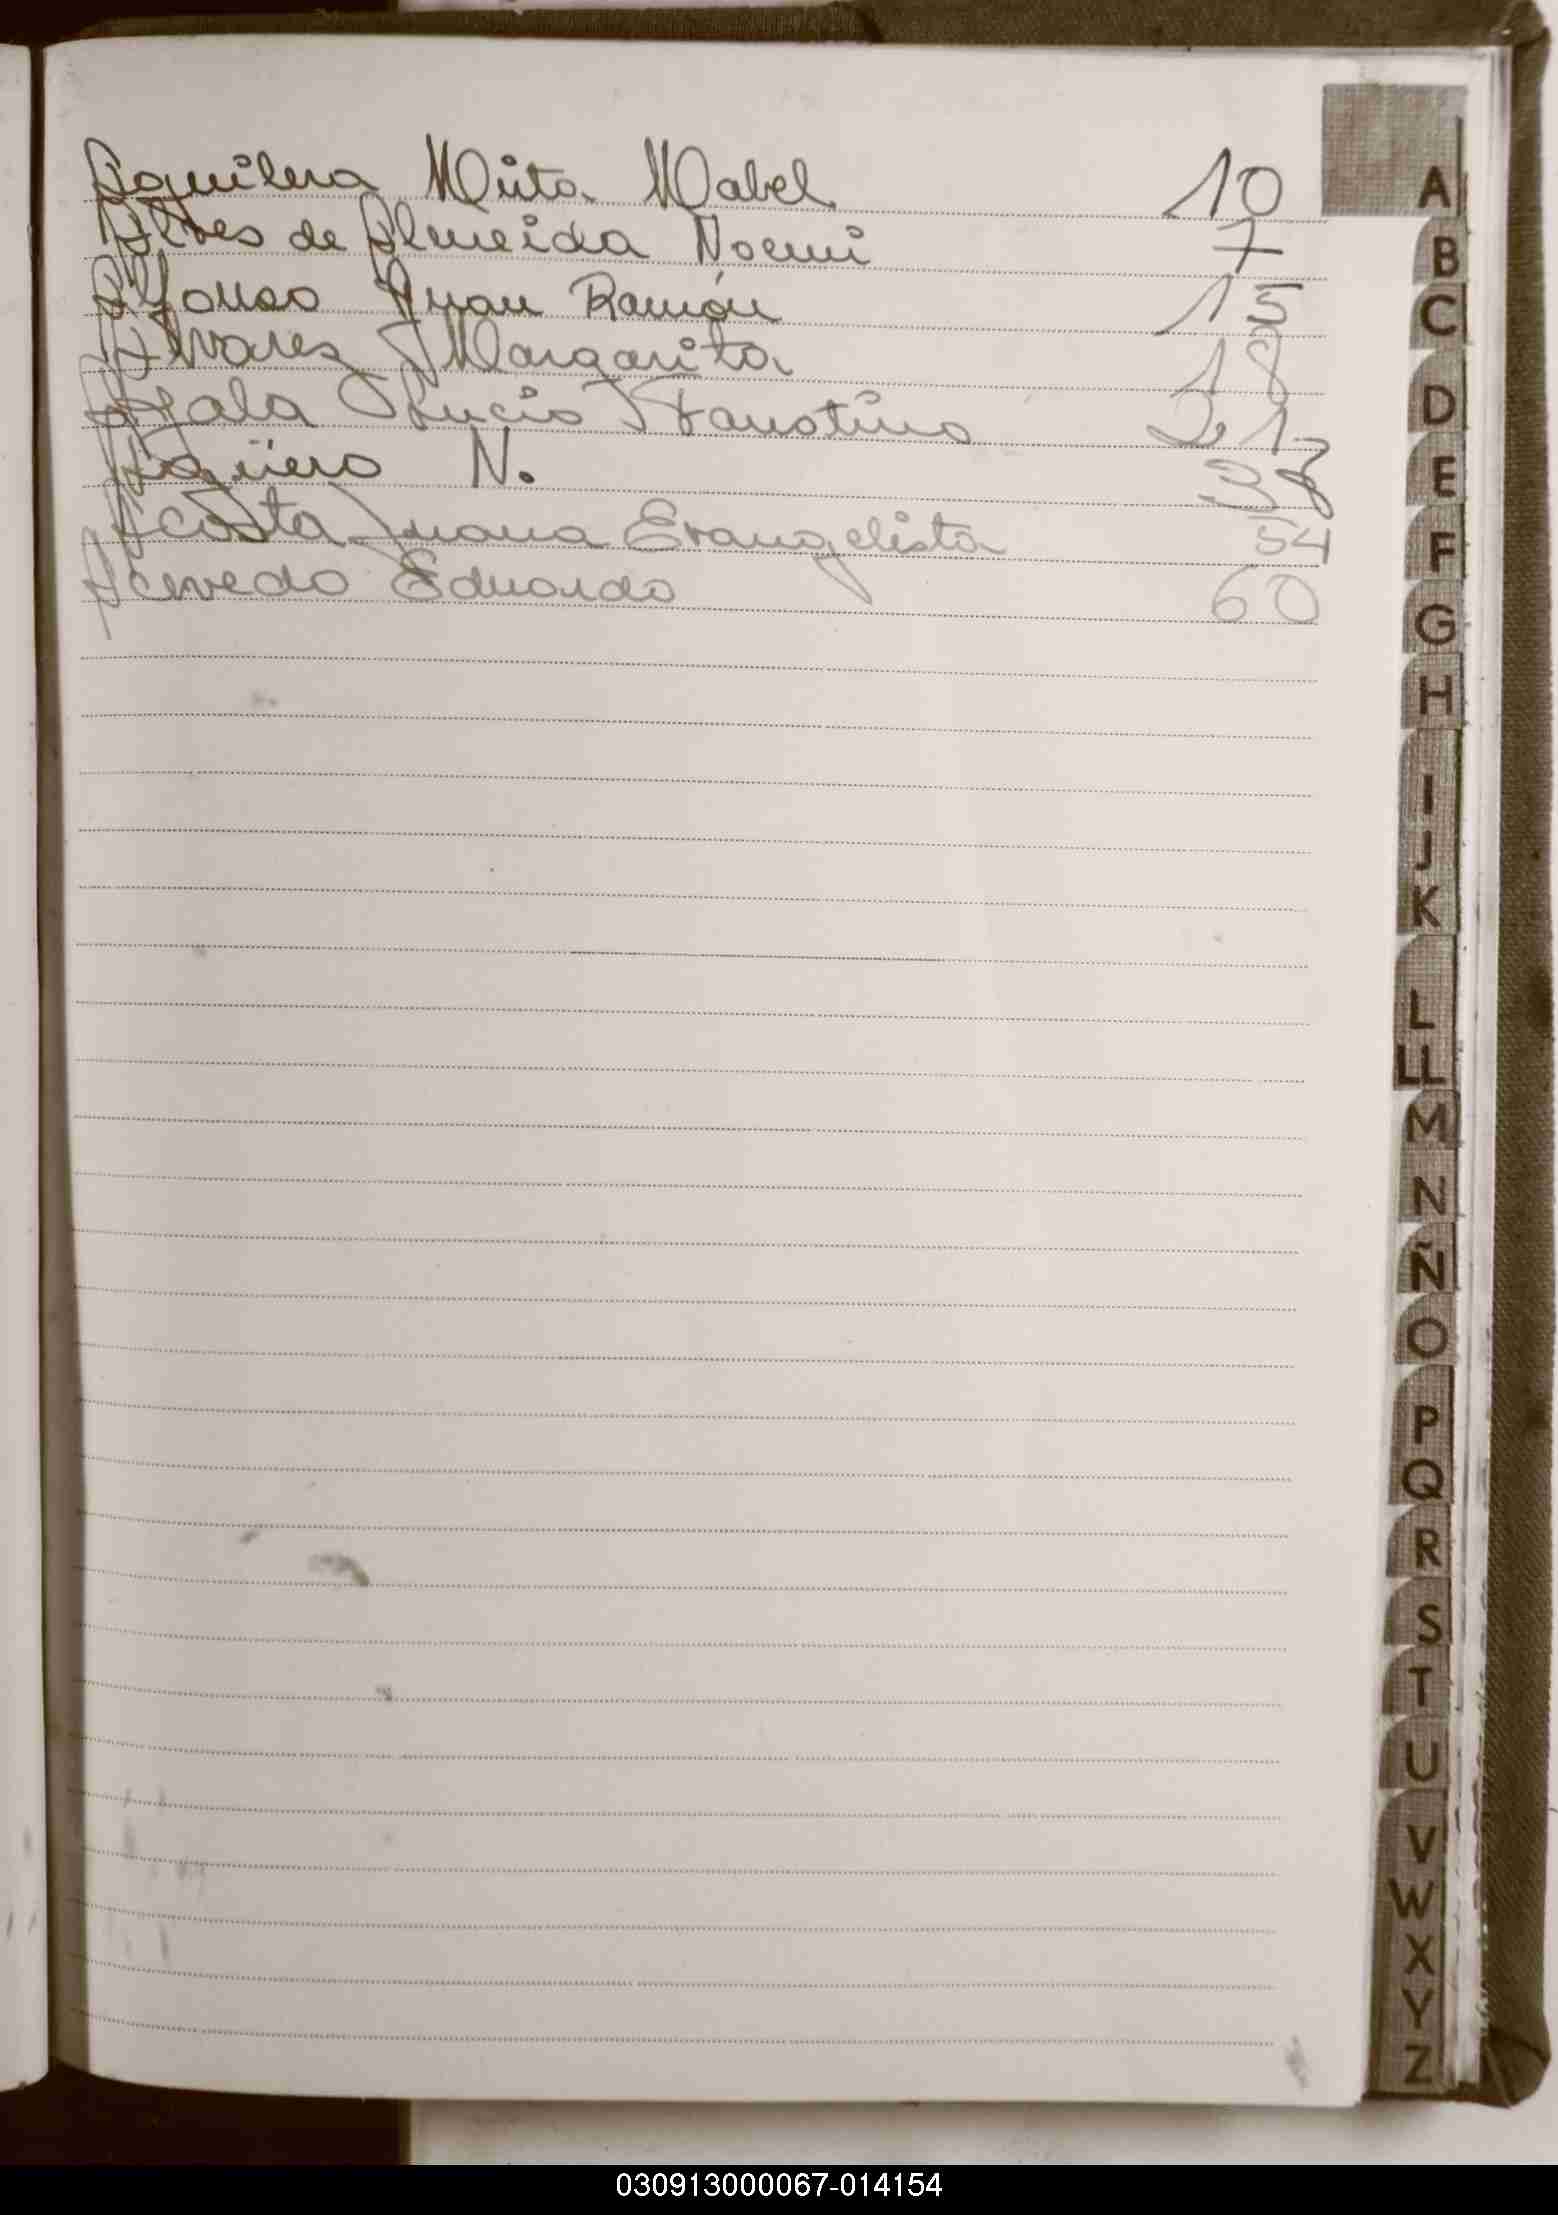 Aguilera Mirta Mabel 10
Alves de Almeida Noemi 7
Alfonso Juan Ramón 15
Alvarez Margarita 18
Ayala Lucio Faustino 21
Agüero N. 38
Acosta Juana Evangelista 54
Acevedo Eduardo 60
A
B
C
D
E
F
G
H
I
J
K
L
LL
M
N
Ñ
O
P
Q
R
S
T
U
V
W
X
Y
Z
030913000067-014154